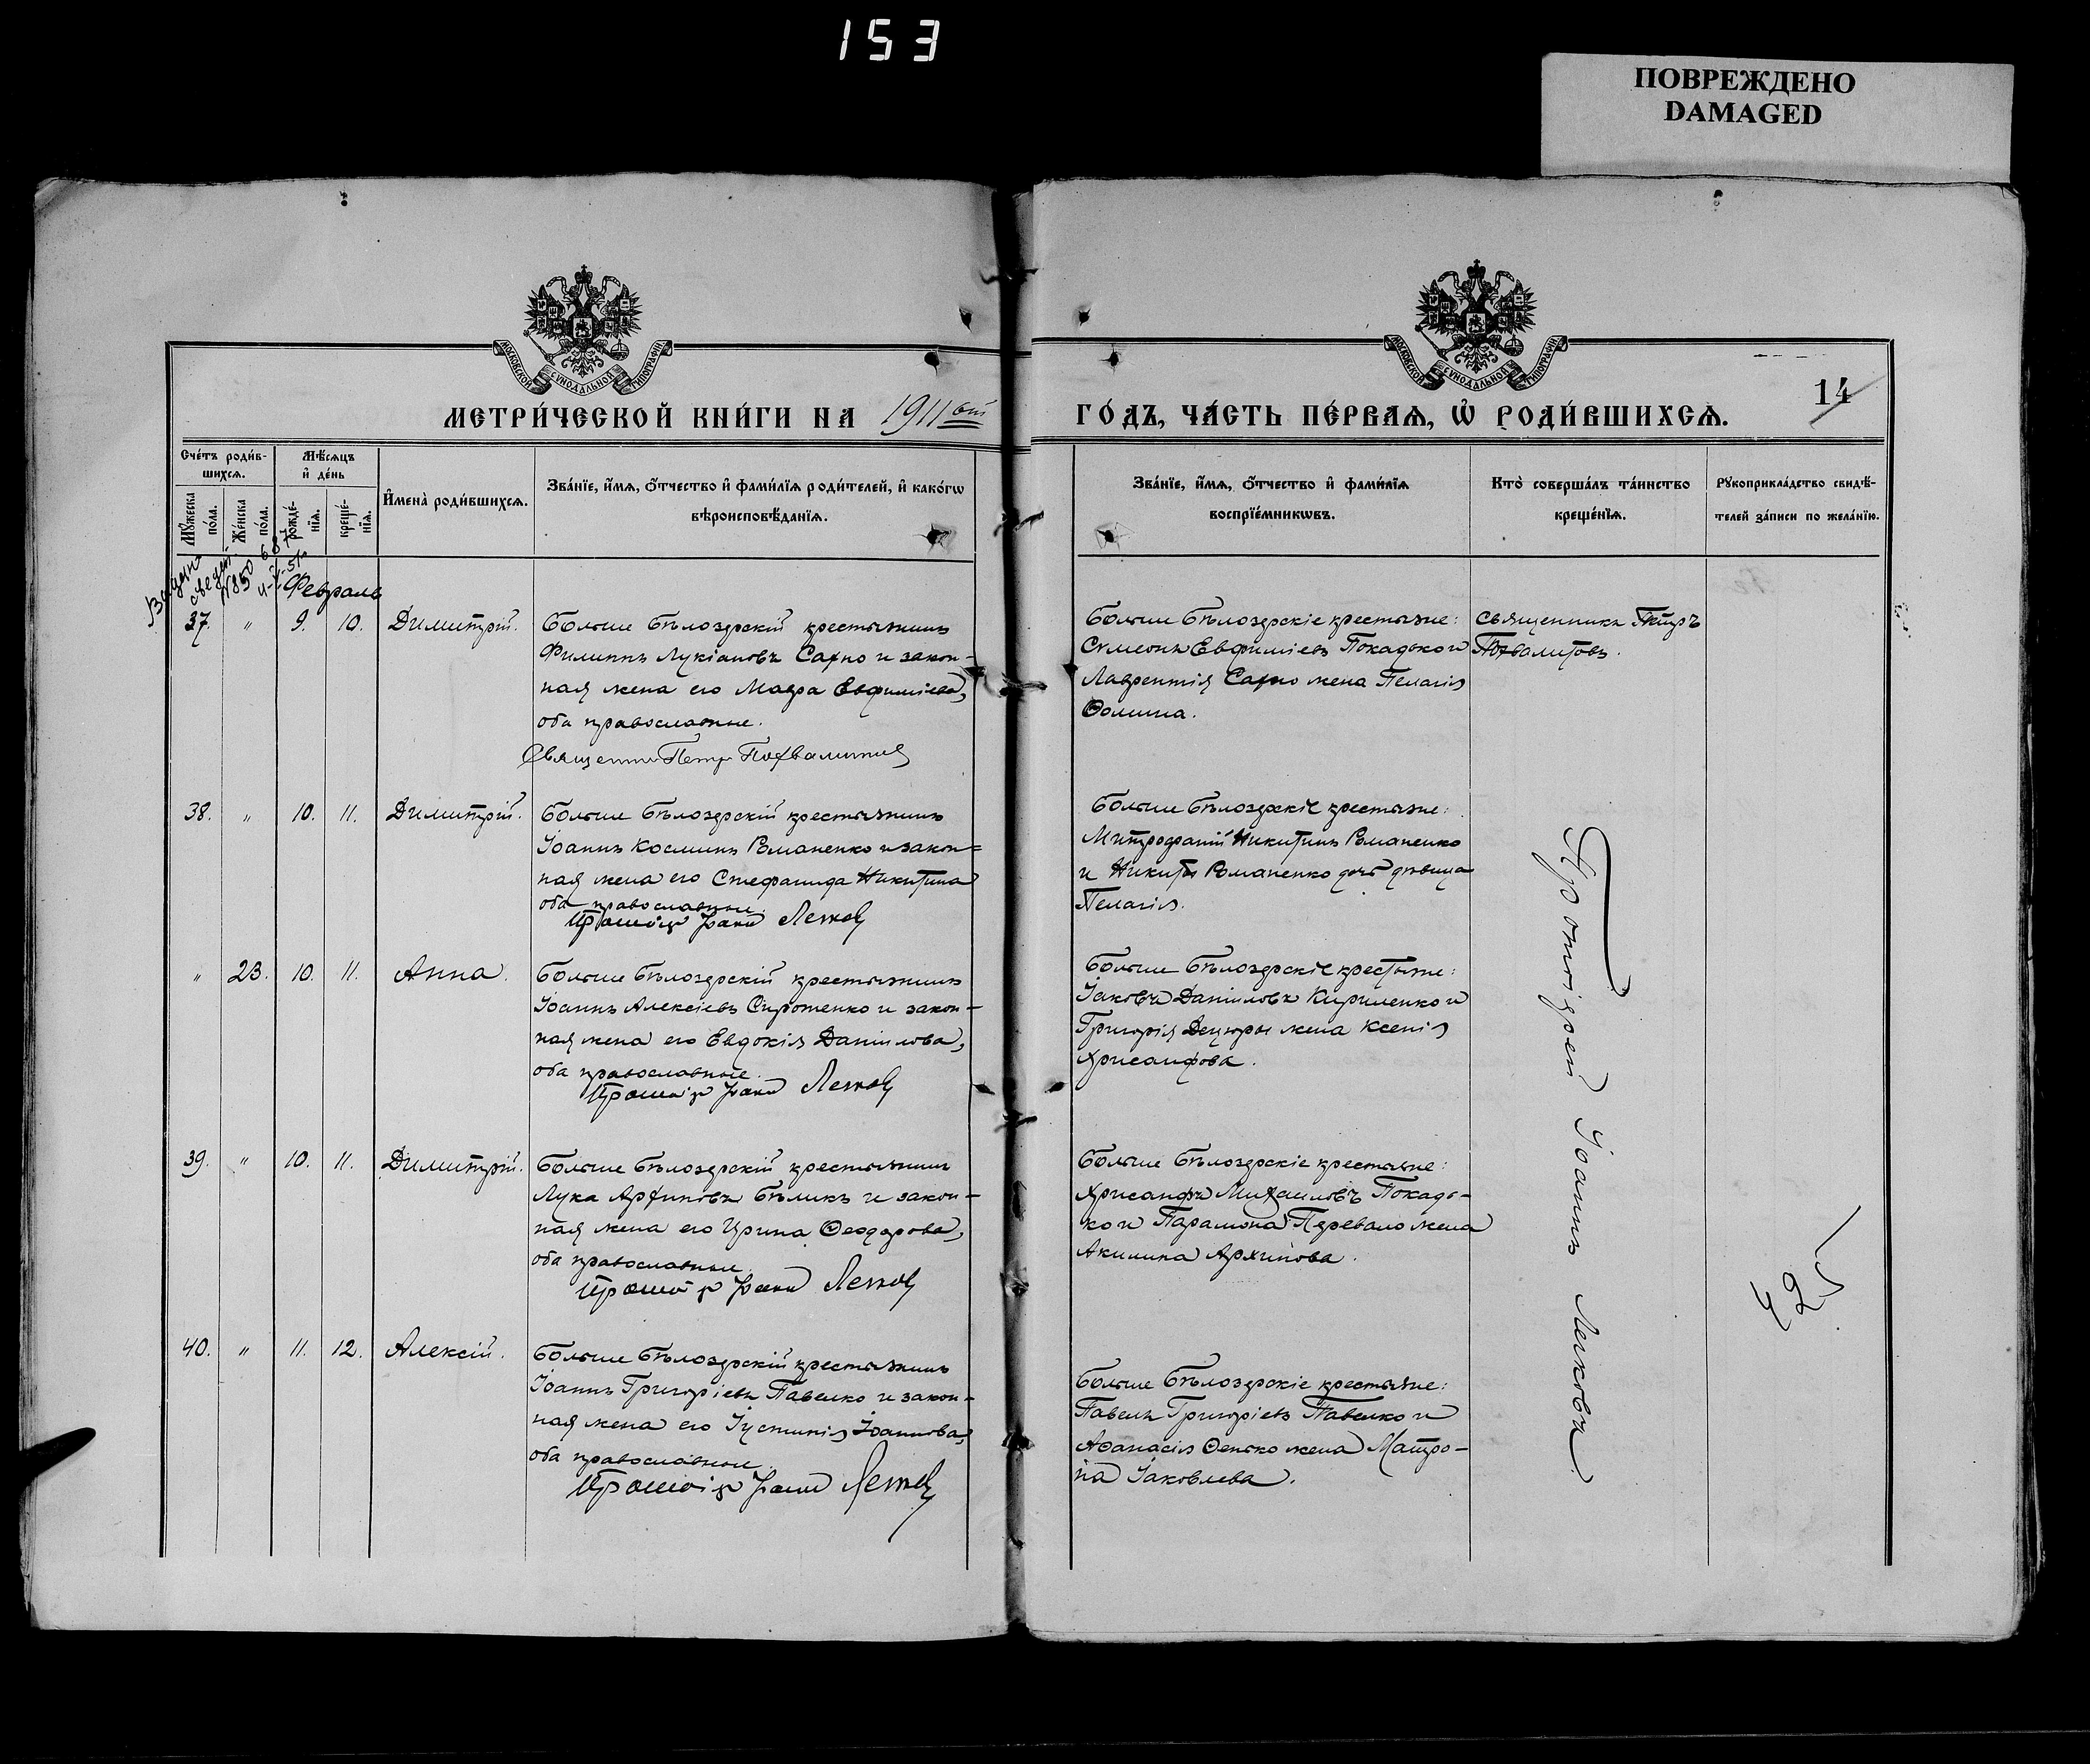 153
ПОВРЕЖДЕНО
DAMAGED
МОСКОВСКОЙ СѴНОДАЛЬНОЙ ТИПОГРАФІИ
МОСКОВСКОЙ СѴНОДАЛЬНОЙ ТИПОГРАФІИ
14
МЕТРИ́ЧЕСКОЙ КНИ́ГИ НА 1911 ый
ГО́ДЪ, ЧА́СТЬ ПЕ́РВАѦ, Ѡ РОДИ́ВШИХСѦ.
Сче́тъ роди́в-
шихсѧ.
Мѣ́сѧцъ
и҆ де́нь
Мꙋ́жеска
по́ла.
Же́нска
по́ла.
рожде́-
нїѧ.
креще́-
нїѧ.
И҆мена̀ роди́вшихсѧ.
Зва́нїе, и҆́мѧ, ѻ҆́тчество и҆ фами́лїѧ роди́телей, и҆ како́гѡ
вѣроисповѣ́данїѧ.
Зва́нїе, и҆́мѧ, ѻ҆́тчество и҆ фами́лїѧ
воспрїе́мникѡвъ.
Кто̀ соверша́лъ та́инство
креще́нїѧ.
Рꙋкоприкла́дство свидѣ́-
телей за́писи по жела́нїю.
№850
Февраль
37. " 9. 10. Димитрій.
Больше Бѣлозерскій крестьянинъ
Филиппъ Лукіановъ Сахно и закон-
ная жена его Мавра Евфиміева,
оба православные.
Священник Петр Похвалитов
Больше Бѣлозерскіе крестьяне:
Сѵмеонъ Евфиміевъ Покадько и
Лаврентія Сахно жена Пелагія
Ѳомина.
Священникъ Петръ
Похвалитовъ.
38. " 10. 11. Димитрій.
Больше Бѣлозерскій крестьянинъ
Іоаннъ Косминъ Романенко и закон=
ная жена его Стефанида Никитина
оба православные.
Протоіер Іоанн Легков
Больше Бѣлозерскіе крестьяне:
Митрофаній Никитинъ Романенко
и Никиты Романенко дочь дѣвица
Пелагія.
" 23. 10. 11. Анна.
Больше Бѣлозерскій крестьянинъ
Іоаннъ Алексіевъ Сиротенко и закон-
ная жена его Евдокія Даніилова,
оба православные.
Протоіер Іоанн Легков
Больше Бѣлозерскіе крестьяне:
Іаковъ Даніиловъ Кириленко и
Григорія Децюры жена Ксенія
Хрисанфова.
39. " 10. 11. Димитрій.
Больше Бѣлозерскій крестьянинъ
Лука Архиповъ Бѣликъ и закон-
ная жена его Ирина Ѳеодорова,
оба православные.
Протоіер Іоанн Легков
Больше Бѣлозерскіе крестьяне:
Хрисанфъ Михаиловъ Покадь-
ко и Парамона Перевало жена
Акилина Архипова.
40. " 11. 12. Алексій.
Больше Бѣлозерскій крестьянинъ
Іоаннъ Григоріевъ Павелко и закон-
ная жена его Іустинія Іоаннова,
оба православные.
Протоіер Іоанн Легков
Больше Бѣлозерскіе крестьяне:
Павелъ Григоріевъ Павелко и
Аѳанасія Ѳенько жена Матро-
на Іаковлева.
Протоіерей Іоаннъ Легковъ